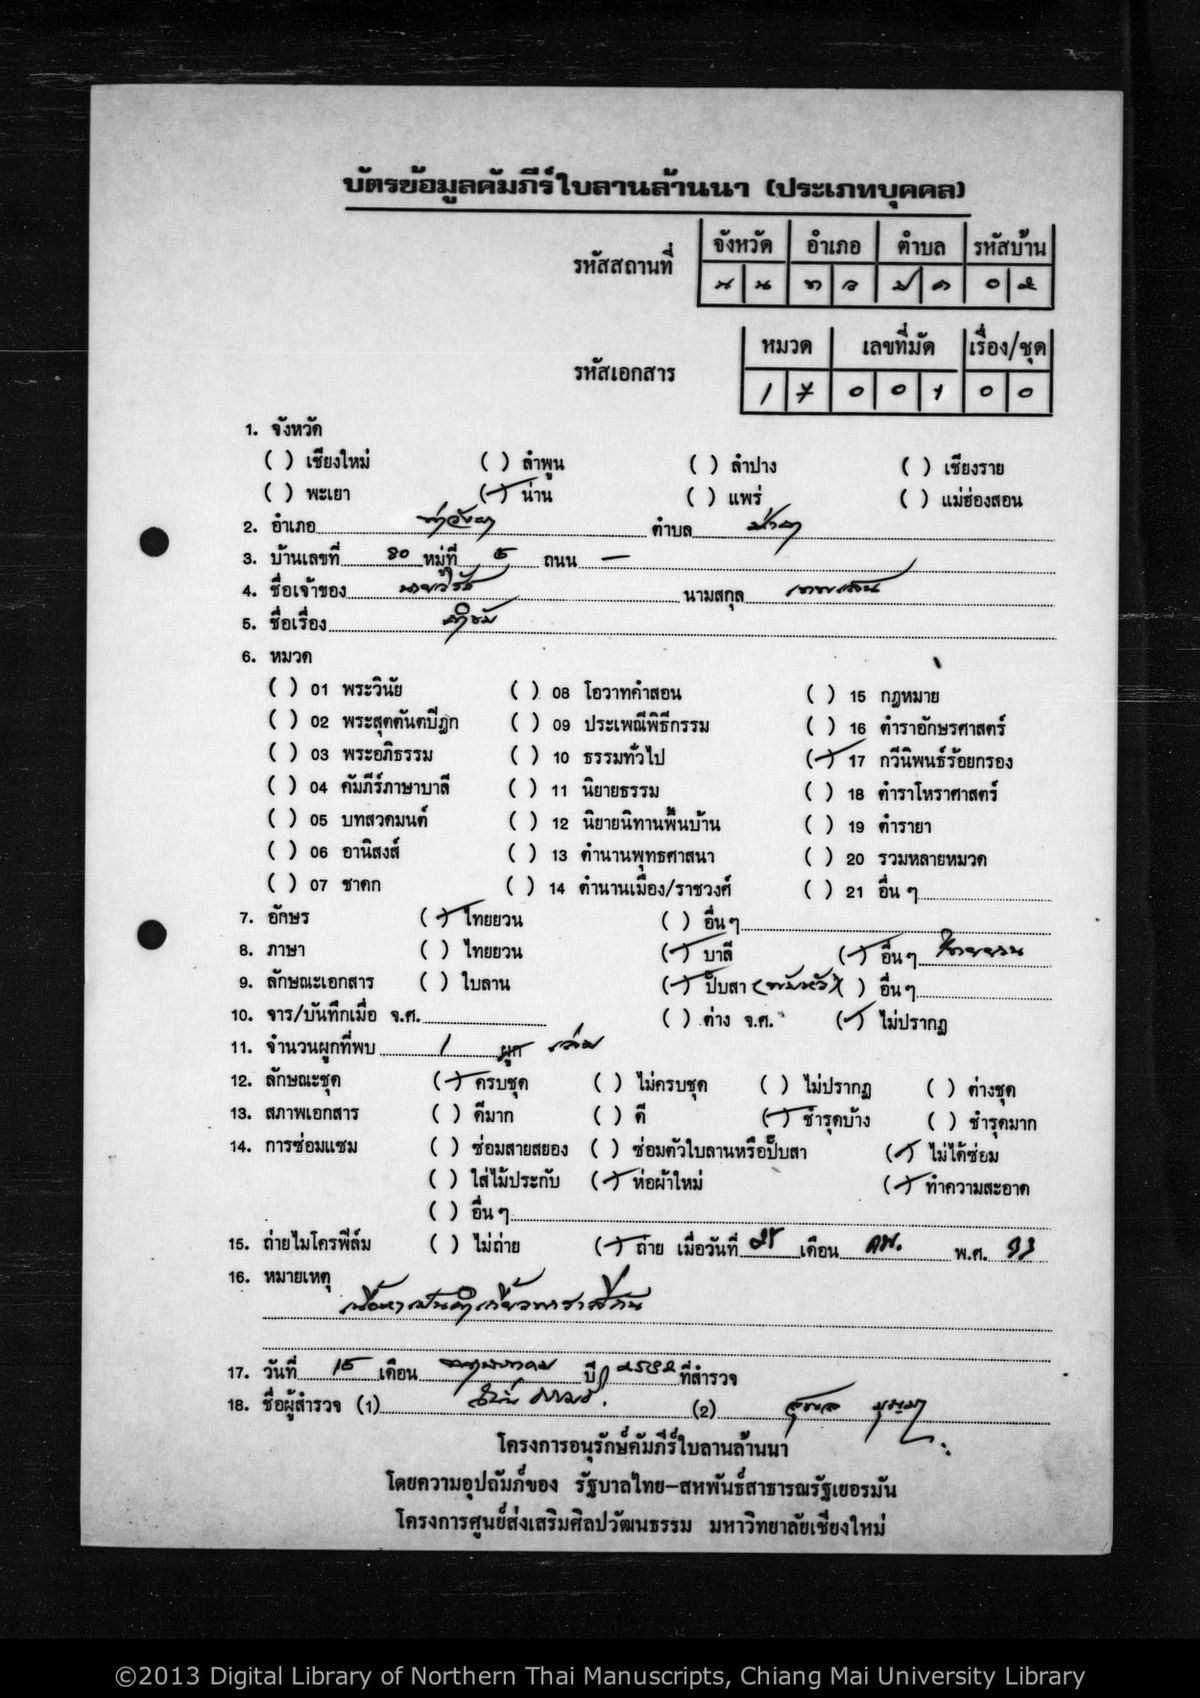 บัตรข้อมูลคัมภีร์ใบลานล้านนา (ประเภทบุคคล)
รหัสสถานที่ จังหวัด อำเภอ ตำบล รหัสบ้าน
น น ท ว ป ค ๐ ๕
รหัสเอกสาร หมวด เลขที่มัด เรื่อง/ชุด
1 7 0 0 1 0 0
1. จังหวัด
( ) เชียงใหม่ ( ) ลำพูน ( ) ลำปาง ( ) เชียงราย
( ) พะเยา (✓) น่าน ( ) แพร่ ( ) แม่ฮ่องสอน
2. อำเภอ ท่าวังผา ตำบล ป่าคา
3. บ้านเลขที่ 80 หมู่ที่ 5 ถนน —
4. ชื่อเจ้าของ นามสกุล
5. ชื่อเรื่อง
6. หมวด
( ) 01 พระวินัย ( ) 08 โอวาทคำสอน ( ) 15 กฎหมาย
( ) 02 พระสุตตันตปิฎก ( ) 09 ประเพณีพิธีกรรม ( ) 16 ตำราอักษรศาสตร์
( ) 03 พระอภิธรรม ( ) 10 ธรรมทั่วไป (✓) 17 กวีนิพนธ์ร้อยกรอง
( ) 04 คัมภีร์ภาษาบาลี ( ) 11 นิยายธรรม ( ) 18 ตำราโหราศาสตร์
( ) 05 บทสวดมนต์ ( ) 12 นิยายนิทานพื้นบ้าน ( ) 19 ตำรายา
( ) 06 อานิสงส์ ( ) 13 ตำนานพุทธศาสนา ( ) 20 รวมหลายหมวด
( ) 07 ชาดก ( ) 14 ตำนานเมือง/ราชวงศ์ ( ) 21 อื่น ๆ
7. อักษร (✓) ไทยยวน ( ) อื่นๆ
8. ภาษา ( ) ไทยยวน (✓) บาลี (✓) อื่นๆ ไทยยวน
9. ลักษณะเอกสาร ( ) ใบลาน (✓) ปั๊บสา (พับหัว) ( ) อื่นๆ
10. จาร/บันทึกเมื่อ จ.ศ. ( ) ต่าง จ.ศ. (✓) ไม่ปรากฏ
11. จำนวนผูกที่พบ 1 ผูก เล่ม
12. ลักษณะชุด (✓) ครบชุด ( ) ไม่ครบชุด ( ) ไม่ปรากฏ ( ) ต่างชุด
13. สภาพเอกสาร ( ) ดีมาก ( ) ดี (✓) ชำรุดบ้าง ( ) ชำรุดมาก
14. การซ่อมแซม ( ) ซ่อมสายสยอง ( ) ซ่อมตัวใบลานหรือปั๊บสา (✓) ไม่ได้ซ่อม
( ) ใส่ไม้ประกับ (✓) ห่อผ้าใหม่ (✓) ทำความสะอาด
( ) อื่น ๆ
15. ถ่ายไมโครฟีล์ม ( ) ไม่ถ่าย (✓) ถ่าย เมื่อวันที่ เดือน พ.ศ. 33
16. หมายเหตุ
17. วันที่ 15 เดือน ปี ๒๕๓๒ ที่สำรวจ
18. ชื่อผู้สำรวจ (1) (2)
โครงการอนุรักษ์คัมภีร์ใบลานล้านนา
โดยความอุปถัมภ์ของ รัฐบาลไทย-สหพันธ์สาธารณรัฐเยอรมัน
โครงการศูนย์ส่งเสริมศิลปวัฒนธรรม มหาวิทยาลัยเชียงใหม่
©2013 Digital Library of Northern Thai Manuscripts, Chiang Mai University Library